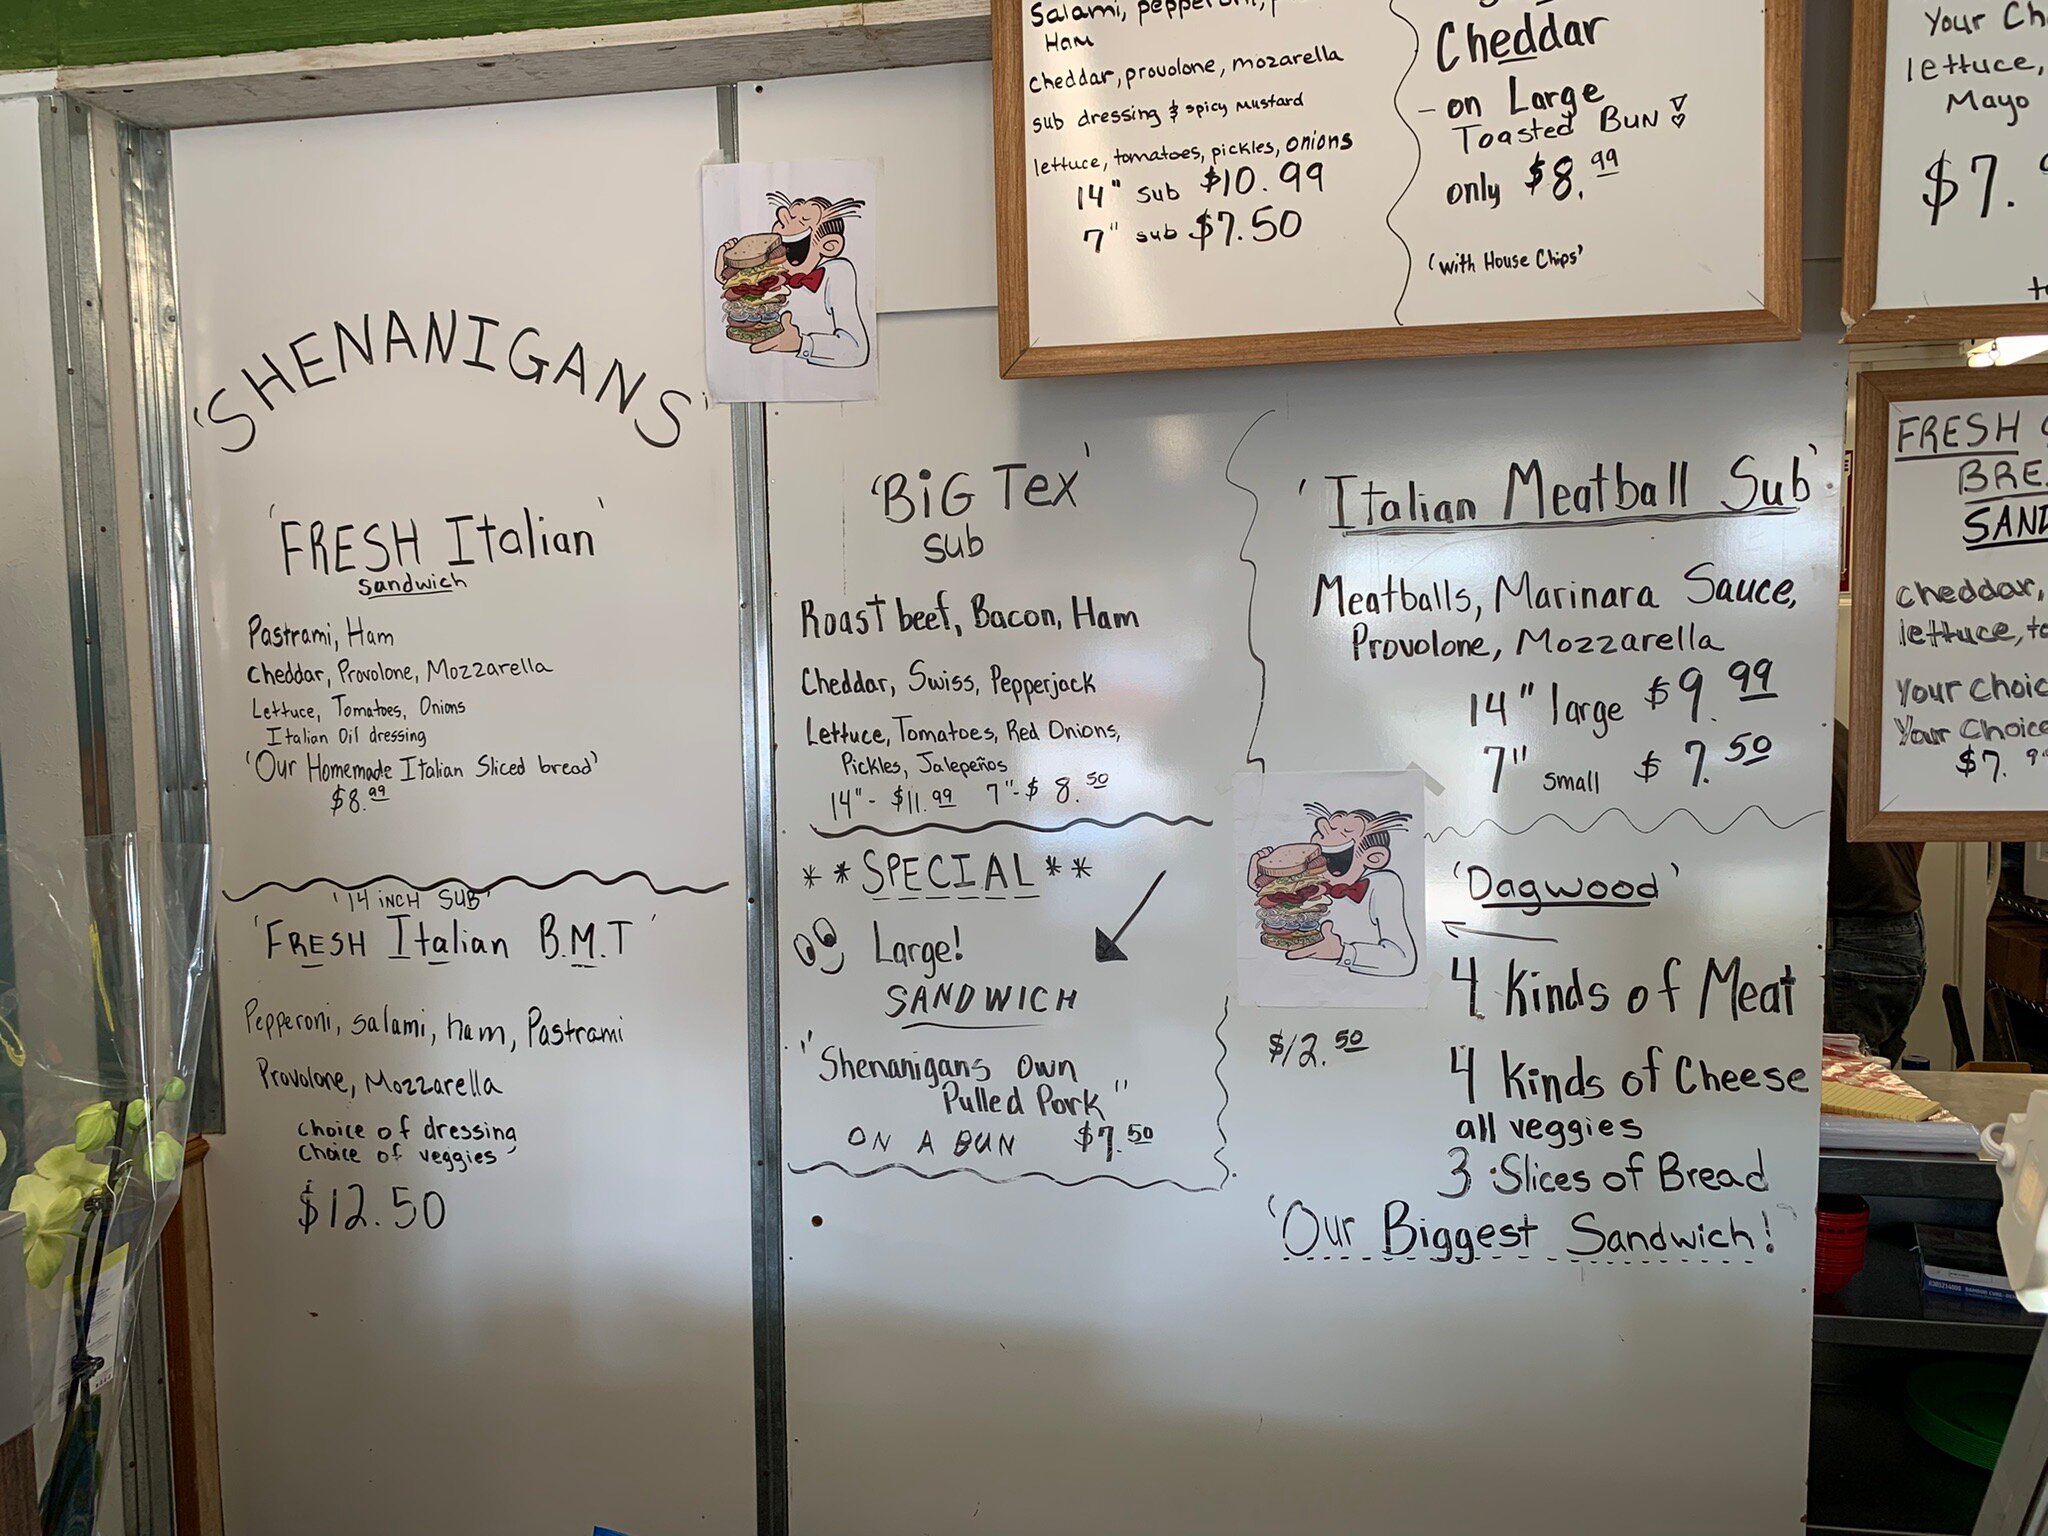 'SHENANIGANS'
'FRESH Italian'
Sandwich
Pastrami, Ham
Cheddar, Provolone, Mozzarella
Lettuce, Tomatoes, Onions
Italian Oil dressing
'Our Homemade Italian Sliced bread'
$8.99
'14 inch SUB'
'FRESH Italian B.M.T'
Pepperoni, salami, ham, Pastrami
Provolone, Mozzarella
choice of dressing
choice of veggies'
$12.50
'BiG Tex'
sub
Roast beef, Bacon, Ham
Cheddar, Swiss, Pepperjack
Lettuce, Tomatoes, Red Onions,
Pickles, Jalepeños
14"- $11.99 7"- $8.50
**SPECIAL**
Large!
SANDWICH
"Shenanigans Own
Pulled Pork"
ON A BUN $7.50
Salami, pepperoni,
Ham
cheddar, provolone, mozarella
sub dressing & spicy mustard
lettuce, tomatoes, pickles, onions
14" sub $10.99
7" sub $7.50
Cheddar
- on Large
Toasted BUN
only $8.99
(with House Chips'
'Italian Meatball Sub'
Meatballs, Marinara Sauce,
Provolone, Mozzarella
14" large $9.99
7" small $7.50
'Dagwood'
4 Kinds of Meat
$12.50
4 Kinds of Cheese
all veggies
3 Slices of Bread
'Our Biggest Sandwich!'
Your
lettuce,
Mayo
$7.
FRESH
cheddar,
lettuce,
Your
Your Choice
$7.